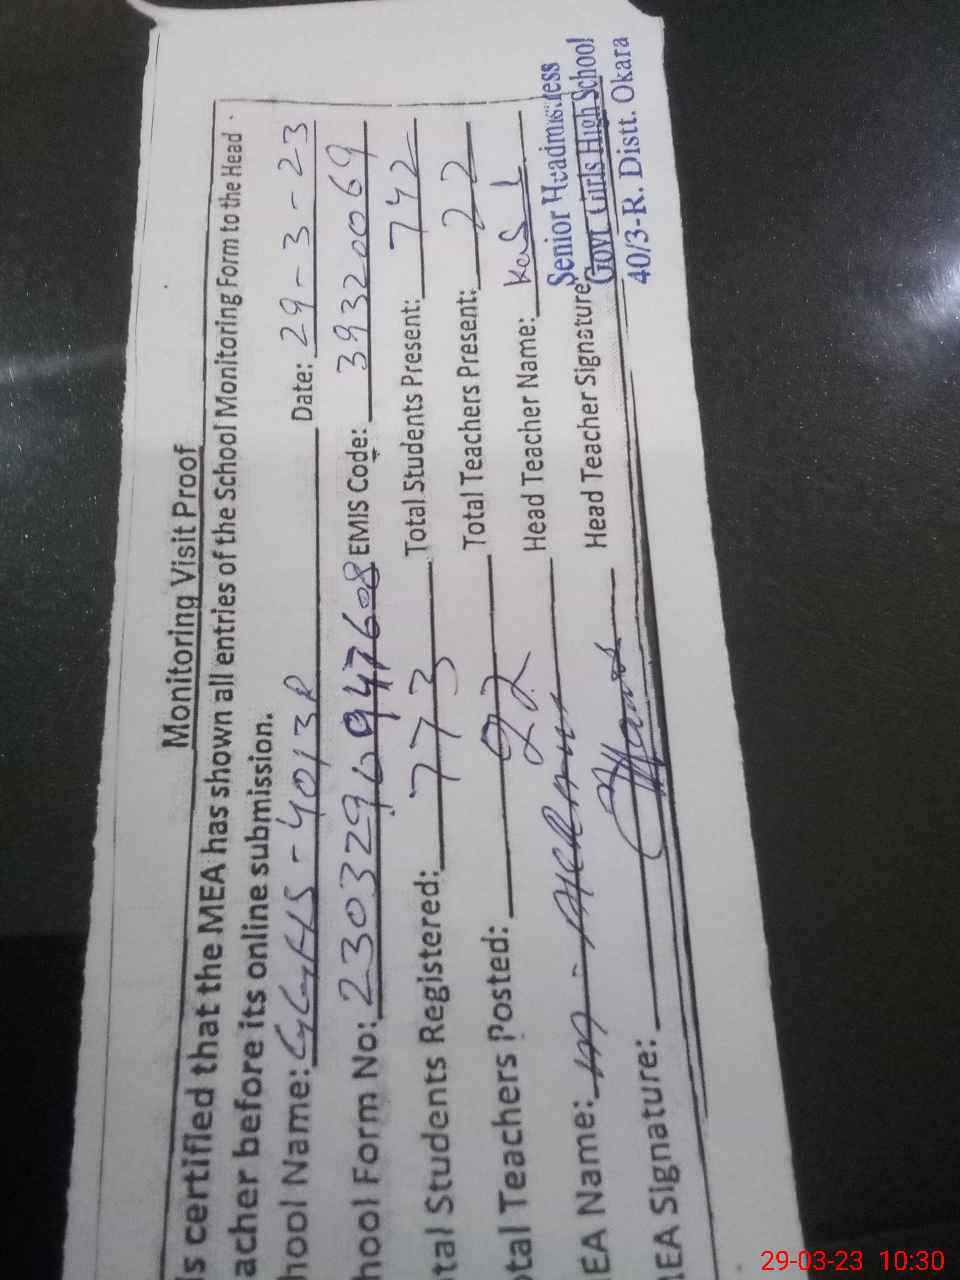 Monitoring Visit Proof
is certified that the MEA has shown all entries of the School Monitoring Form to the Head
acher before its online submission.
hool Name: GGHS-4013R Date: 29-3-23
hool Form No: 2303296947608 EMIS Code: 39320069
tal Students Registered: 773 Total Students Present: 742
otal Teachers Posted: 22 Total Teachers Present: 22
EA Name: Head Teacher Name:
MEA Signature: Head Teacher Signature
Senior Headmistress
Govt. Girls High School
40/3-R. Distt. Okara
29-03-23 10:30